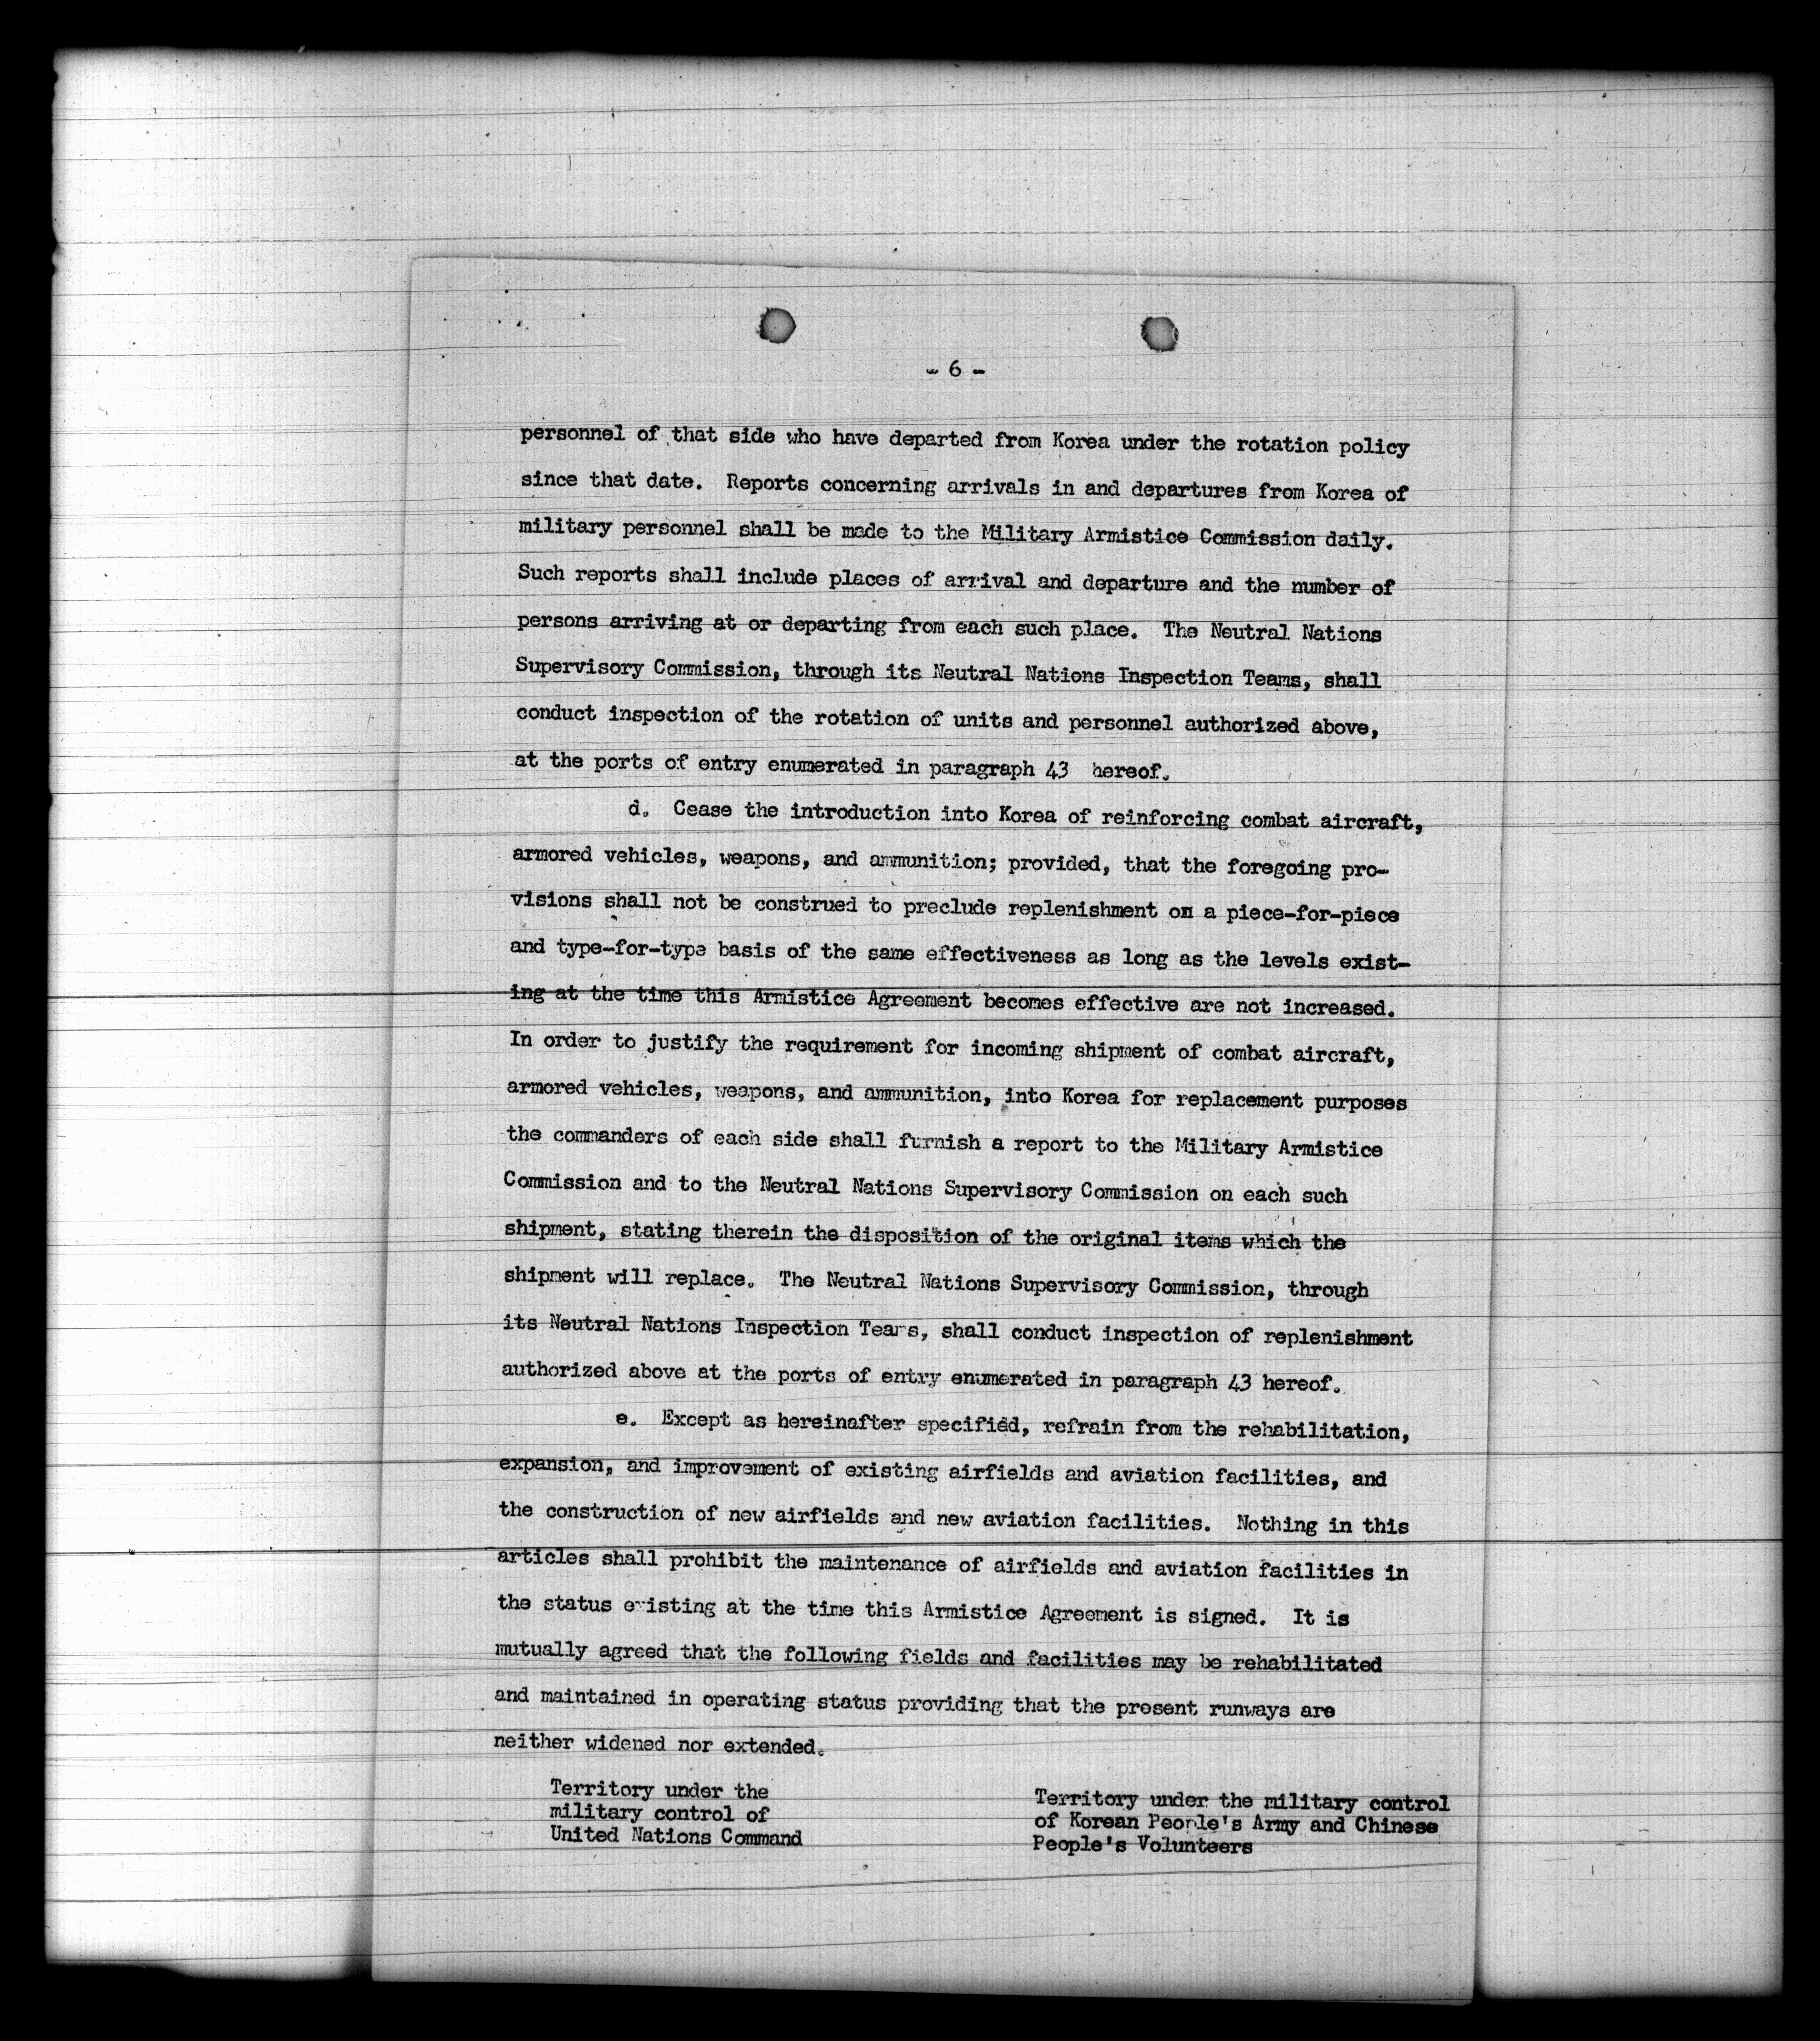 - 6 -
personnel of that side who have departed from Korea under the rotation policy
since that date. Reports concerning arrivals in and departures from Korea of
military personnel shall be made to the Military Armistice Commission daily.
Such reports shall include places of arrival and departure and the number of
persons arriving at or departing from each such place. The Neutral Nations
Supervisory Commission, through its Neutral Nations Inspection Teams, shall
conduct inspection of the rotation of units and personnel authorized above,
at the ports of entry enumerated in paragraph 43 hereof.
d. Cease the introduction into Korea of reinforcing combat aircraft,
armored vehicles, weapons, and ammunition; provided, that the foregoing pro-
visions shall not be construed to preclude replenishment on a piece-for-piece
and type-for-type basis of the same effectiveness as long as the levels exist-
ing at the time this Armistice Agreement becomes effective are not increased.
In order to justify the requirement for incoming shipment of combat aircraft,
armored vehicles, weapons, and ammunition, into Korea for replacement purposes
the commanders of each side shall furnish a report to the Military Armistice
Commission and to the Neutral Nations Supervisory Commission on each such
shipment, stating therein the disposition of the original items which the
shipment will replace. The Neutral Nations Supervisory Commission, through
its Neutral Nations Inspection Teams, shall conduct inspection of replenishment
authorized above at the ports of entry enumerated in paragraph 43 hereof.
e. Except as hereinafter specified, refrain from the rehabilitation,
expansion, and improvement of existing airfields and aviation facilities, and
the construction of new airfields and new aviation facilities. Nothing in this
articles shall prohibit the maintenance of airfields and aviation facilities in
the status existing at the time this Armistice Agreement is signed. It is
mutually agreed that the following fields and facilities may be rehabilitated
and maintained in operating status providing that the present runways are
neither widened nor extended.
Territory under the
military control of
United Nations Command
Territory under the military control
of Korean People's Army and Chinese
People's Volunteers